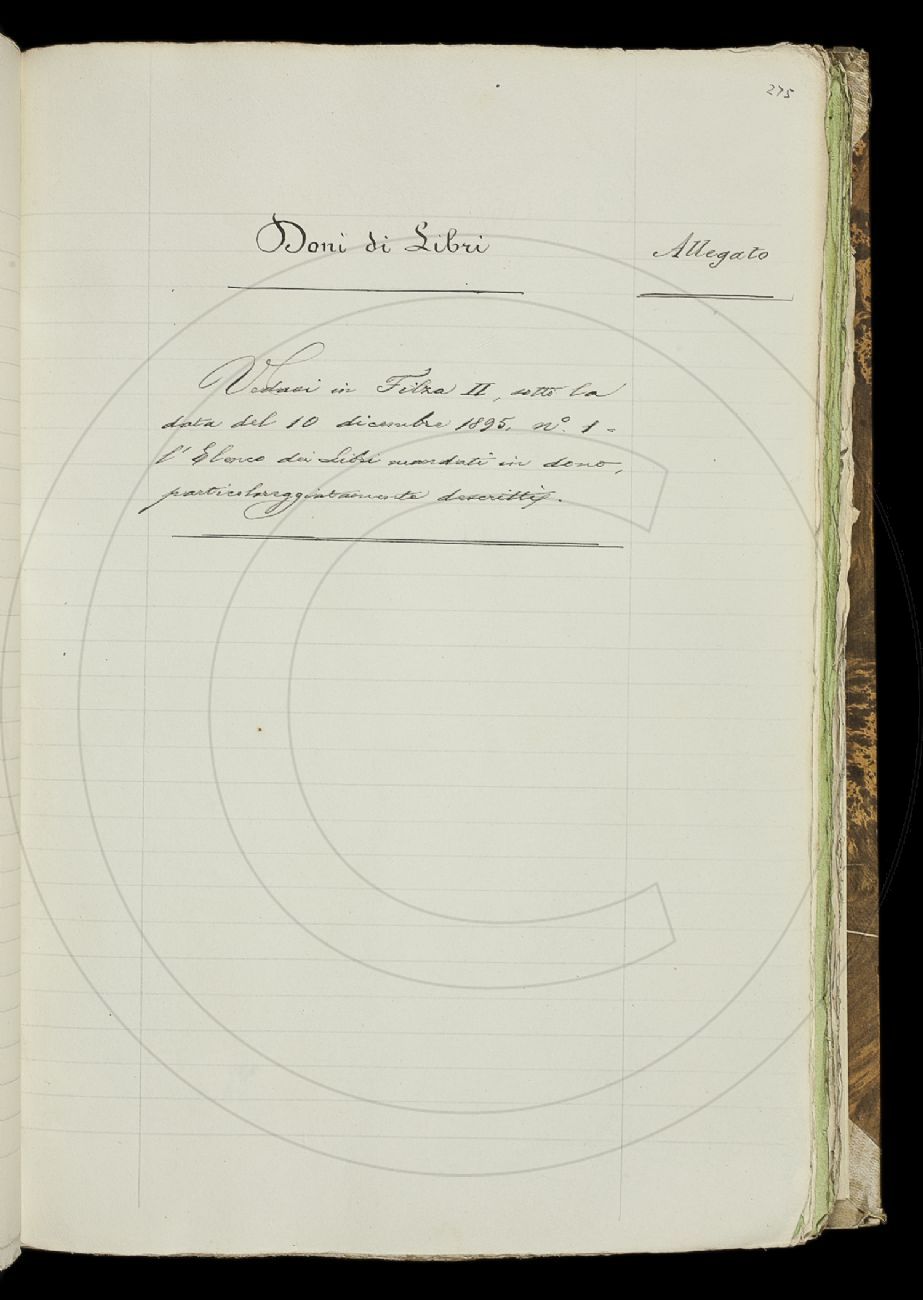 275
Doni di Libri
Allegato
Vedasi in Filza II, sotto la
data del 10 dicembre 1895, n.º 1 =
l'Elenco dei Libri mandati in dono,
particolareggiatamente descritti.